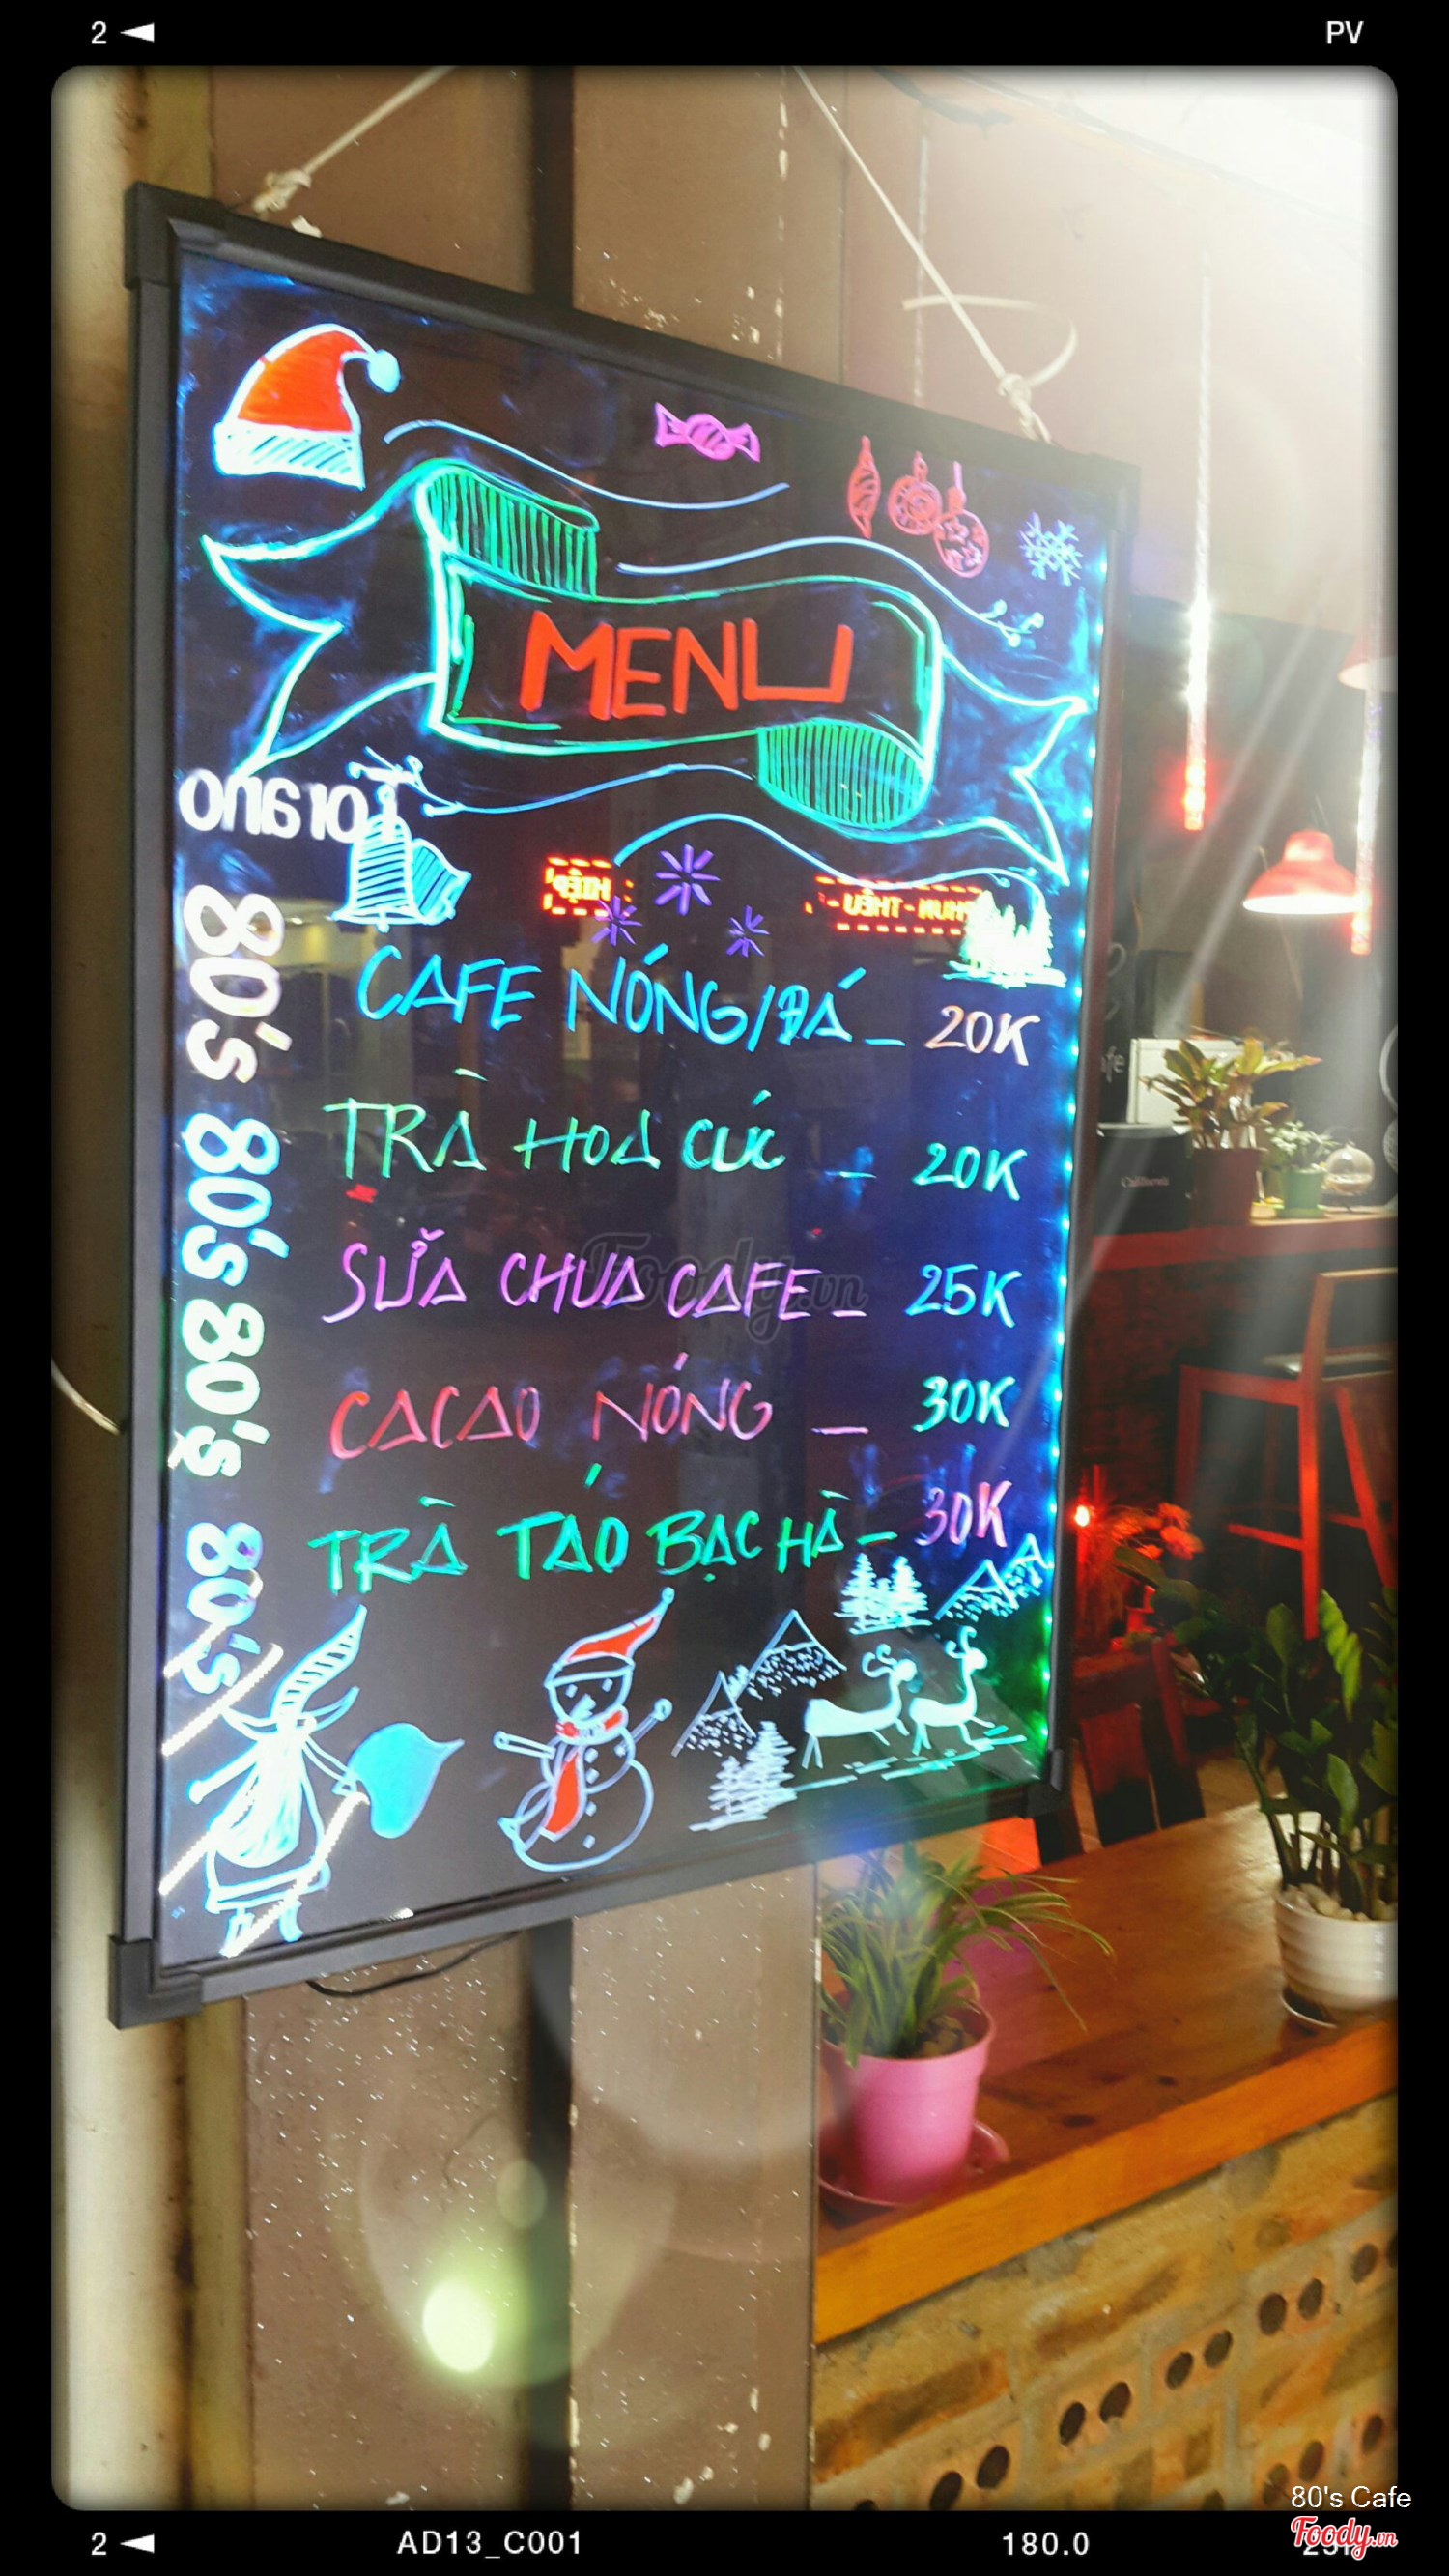 2 PV
MENU
Torano
HIỆP
PHUN - THÊU -
80's 80's 80's 80's
CAFE NÓNG/ĐÁ _ 20K
TRÀ HOA CÚC _ 20K
SỬA CHUA CAFE _ 25K
CACAO NÓNG _ 30K
TRÀ TÁO BẠC HÀ _ 30K
Foody.vn
80's Cafe
Foody.vn
2 AD13_C001 180.0